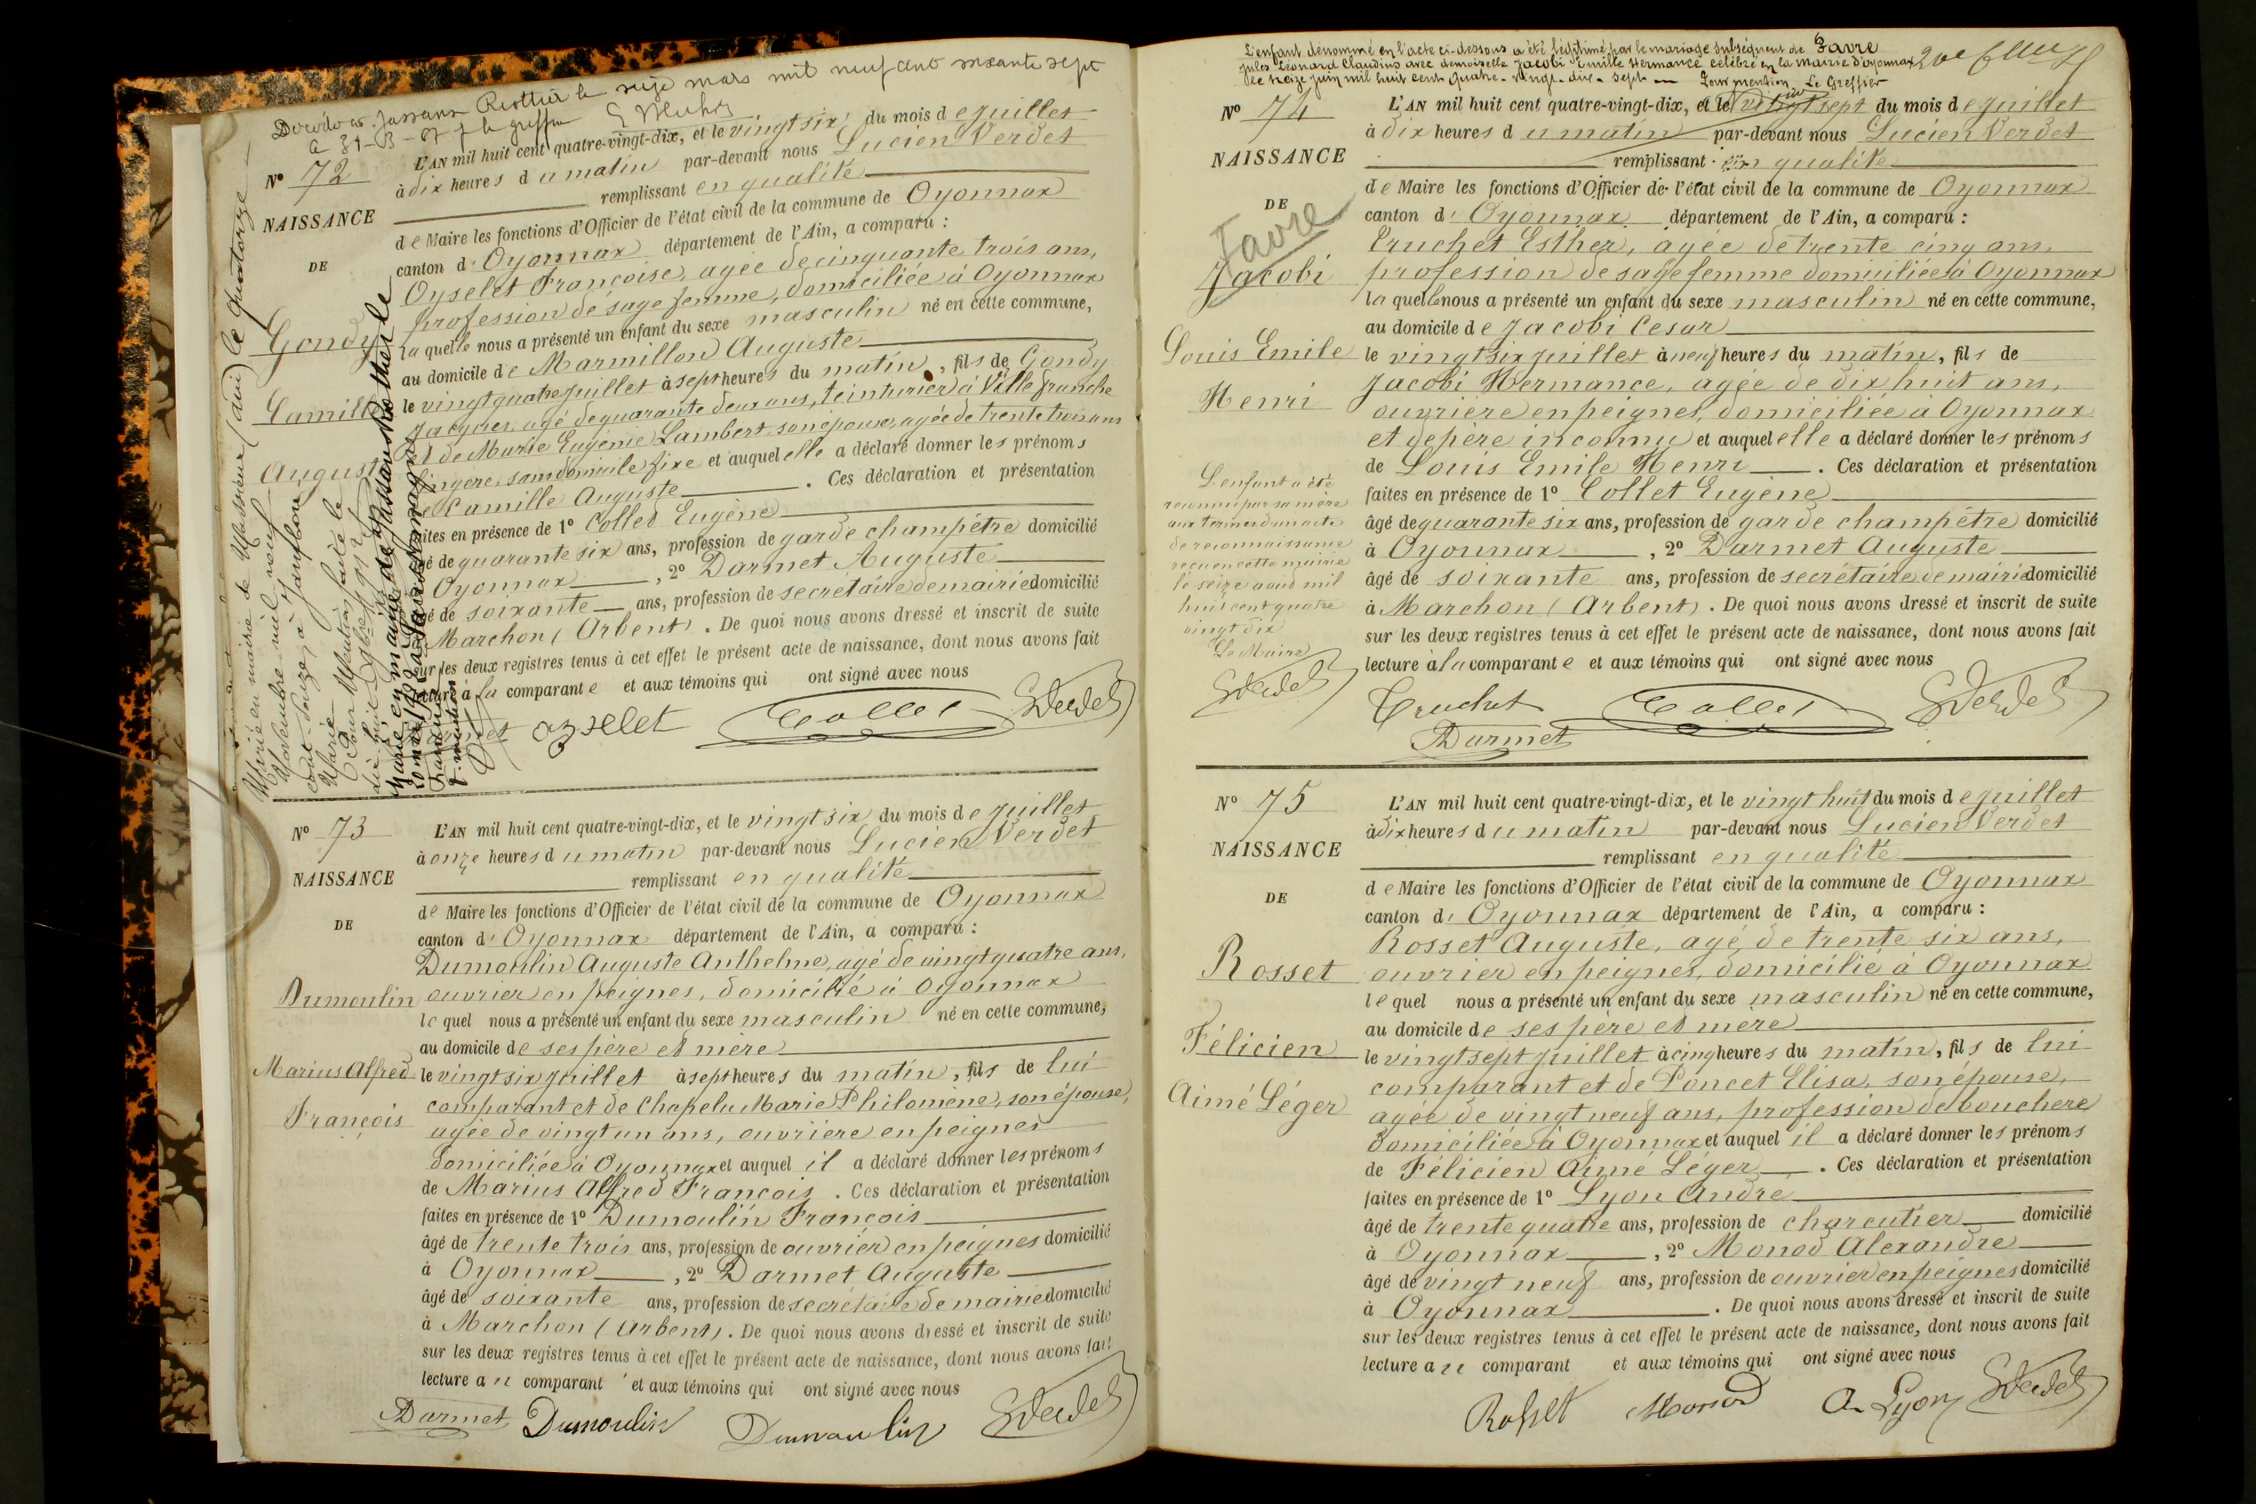 Décédé à Jassans Riottier le seize mars mil neuf cent soixante sept
N° 72
NAISSANCE
DE
Gondy
Camille
Auguste
L'AN mil huit cent quatre-vingt-dix, et le vingt six du mois de juillet
à dix heures du matin par-devant nous Lucien Verdet
remplissant en qualité
de Maire les fonctions d'Officier de l'état civil de la commune de Oyonnax
canton d'Oyonnax département de l'Ain, a comparu :
Oyselet Françoise, agée de cinquante trois ans,
profession de sage femme, domiciliée à Oyonnax
laquelle nous a présenté un enfant du sexe masculin né en cette commune,
au domicile de Marmillon Auguste
le vingt quatre juillet à sept heures du matin, fils de Gondy
Jacques, agé de quarante deux ans, teinturier à Villefranche
et de Marie Eugénie Lambert son épouse, agée de trente trois ans
lingere, sans domicile fixe et auquel elle a déclaré donner les prénoms
de Camille Auguste. Ces déclaration et présentation
faites en présence de 1° Collet Eugène
âgé de quarante six ans, profession de garde champêtre domicilié
à Oyonnax, 2° Darmet Auguste
âgé de soixante ans, profession de secrétaire de mairie domicilié
à Marchon (Arbent). De quoi nous avons dressé et inscrit de suite
sur les deux registres tenus à cet effet le présent acte de naissance, dont nous avons fait
lecture à la comparante et aux témoins qui ont signé avec nous
oyselet Collet Verdet
Marié en mairie de Massieux (Ain) le quatorze
Novembre mil neuf
cent douze, à Jambon
Marie
Pour Mention faite le
Marié en mairie de Jassans Riottier le
N° 73
NAISSANCE
DE
Dumoulin
Marius Alfred
François
L'AN mil huit cent quatre-vingt-dix, et le vingt six du mois de juillet
à onze heures du matin par-devant nous Lucien Verdet
remplissant en qualité
de Maire les fonctions d'Officier de l'état civil de la commune de Oyonnax
canton d'Oyonnax département de l'Ain, a comparu :
Dumoulin Auguste Anthelme, agé de vingt quatre ans,
ouvrier en peignes, domicilié à Oyonnax
lequel nous a présenté un enfant du sexe masculin né en cette commune,
au domicile de ses père et mère
le vingt six juillet à sept heures du matin, fils de lui
comparant et de Chapelu Marie Philomène, son épouse,
agée de vingt un ans, ouvrière en peignes
domiciliée à Oyonnax et auquel il a déclaré donner les prénoms
de Marius Alfred François. Ces déclaration et présentation
faites en présence de 1° Dumoulin François
âgé de trente trois ans, profession de ouvrier en peignes domicilié
à Oyonnax, 2° Darmet Auguste
âgé de soixante ans, profession de secrétaire de mairie domicilié
à Marchon (Arbent). De quoi nous avons dressé et inscrit de suite
sur les deux registres tenus à cet effet le présent acte de naissance, dont nous avons fait
lecture au comparant et aux témoins qui ont signé avec nous
Darmet Dumoulin Dumoulin Verdet
L'enfant dénommé en l'acte ci-dessous a été légitimé par le mariage subséquent de Favre
Jules Léonard Claudius avec demoiselle Jacobi Emille Hermance célébré en la mairie d'Oyonnax
le seize juin mil huit cent quatre-vingt-dix-sept — Pour mention, Le Greffier
N° 74
NAISSANCE
DE
Favre
Jacobi
Louis Emile
Henri
L'AN mil huit cent quatre-vingt-dix, et le vingt sept du mois de juillet
à dix heures du matin par-devant nous Lucien Verdet
remplissant en qualité
de Maire les fonctions d'Officier de l'état civil de la commune de Oyonnax
canton d'Oyonnax département de l'Ain, a comparu :
Cruchet Esther, agée de trente cinq ans,
profession de sage femme domiciliée à Oyonnax
laquelle nous a présenté un enfant du sexe masculin né en cette commune,
au domicile de Jacobi Cesar
le vingt six juillet à neuf heures du matin, fils de
Jacobi Hermance, agée de dix huit ans,
ouvrière en peignes, domiciliée à Oyonnax
et de père inconnu et auquel elle a déclaré donner les prénoms
de Louis Emile Henri. Ces déclaration et présentation
faites en présence de 1° Collet Eugène
âgé de quarante six ans, profession de garde champêtre domicilié
à Oyonnax, 2° Darmet Auguste
âgé de soixante ans, profession de secrétaire de mairie domicilié
à Marchon (Arbent). De quoi nous avons dressé et inscrit de suite
sur les deux registres tenus à cet effet le présent acte de naissance, dont nous avons fait
lecture à la comparante et aux témoins qui ont signé avec nous
Cruchet Collet Verdet
Darmet
L'enfant a été
reconnu par sa mère
aux termes d'un acte
de reconnaissance
reçu en cette mairie
le seize août mil
huit cent quatre
vingt dix
Le Maire
Verdet
N° 75
NAISSANCE
DE
Rosset
Félicien
Aimé Léger
L'AN mil huit cent quatre-vingt-dix, et le vingt huit du mois de juillet
à dix heures du matin par-devant nous Lucien Verdet
remplissant en qualité
de Maire les fonctions d'Officier de l'état civil de la commune de Oyonnax
canton d'Oyonnax département de l'Ain, a comparu :
Rosset Auguste, agé de trente six ans,
ouvrier en peignes, domicilié à Oyonnax
lequel nous a présenté un enfant du sexe masculin né en cette commune,
au domicile de ses père et mère
le vingt sept juillet à cinq heures du matin, fils de lui
comparant et de Poncet Elisa, son épouse,
agée de vingt neuf ans, profession de bouchere
domiciliée à Oyonnax et auquel il a déclaré donner les prénoms
de Félicien Aimé Léger. Ces déclaration et présentation
faites en présence de 1° Lyon André
âgé de trente quatre ans, profession de charcutier domicilié
à Oyonnax, 2° Monod Alexandre
âgé de vingt neuf ans, profession de ouvrier en peignes domicilié
à Oyonnax. De quoi nous avons dressé et inscrit de suite
sur les deux registres tenus à cet effet le présent acte de naissance, dont nous avons fait
lecture au comparant et aux témoins qui ont signé avec nous
Rosset Monod A. Lyon Verdet